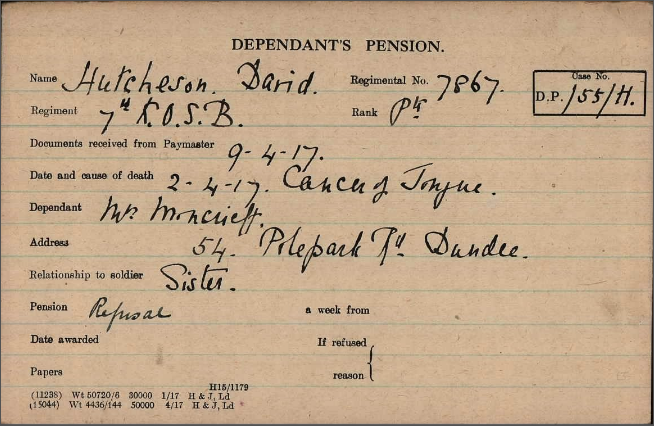 DEPENDANT'S PENSION.
Name Hutcheson. David. Regimental No. 7867. Case No.
Regiment 7th K.O.S.B. Rank Pte D.P. 155/H.
Documents received from Paymaster 9-4-17.
Date and cause of death 2-4-17. Cancer of Tongue.
Dependant Mrs Moncrieff.
Address 54. Polepark Rd. Dundee.
Relationship to soldier Sister.
Pension Refusal a week from
Date awarded If refused
Papers reason
H15/1179
(11238) Wt 50720/6 30000 1/17 H & J, Ld
(15044) Wt 4436/144 50000 4/17 H & J, Ld